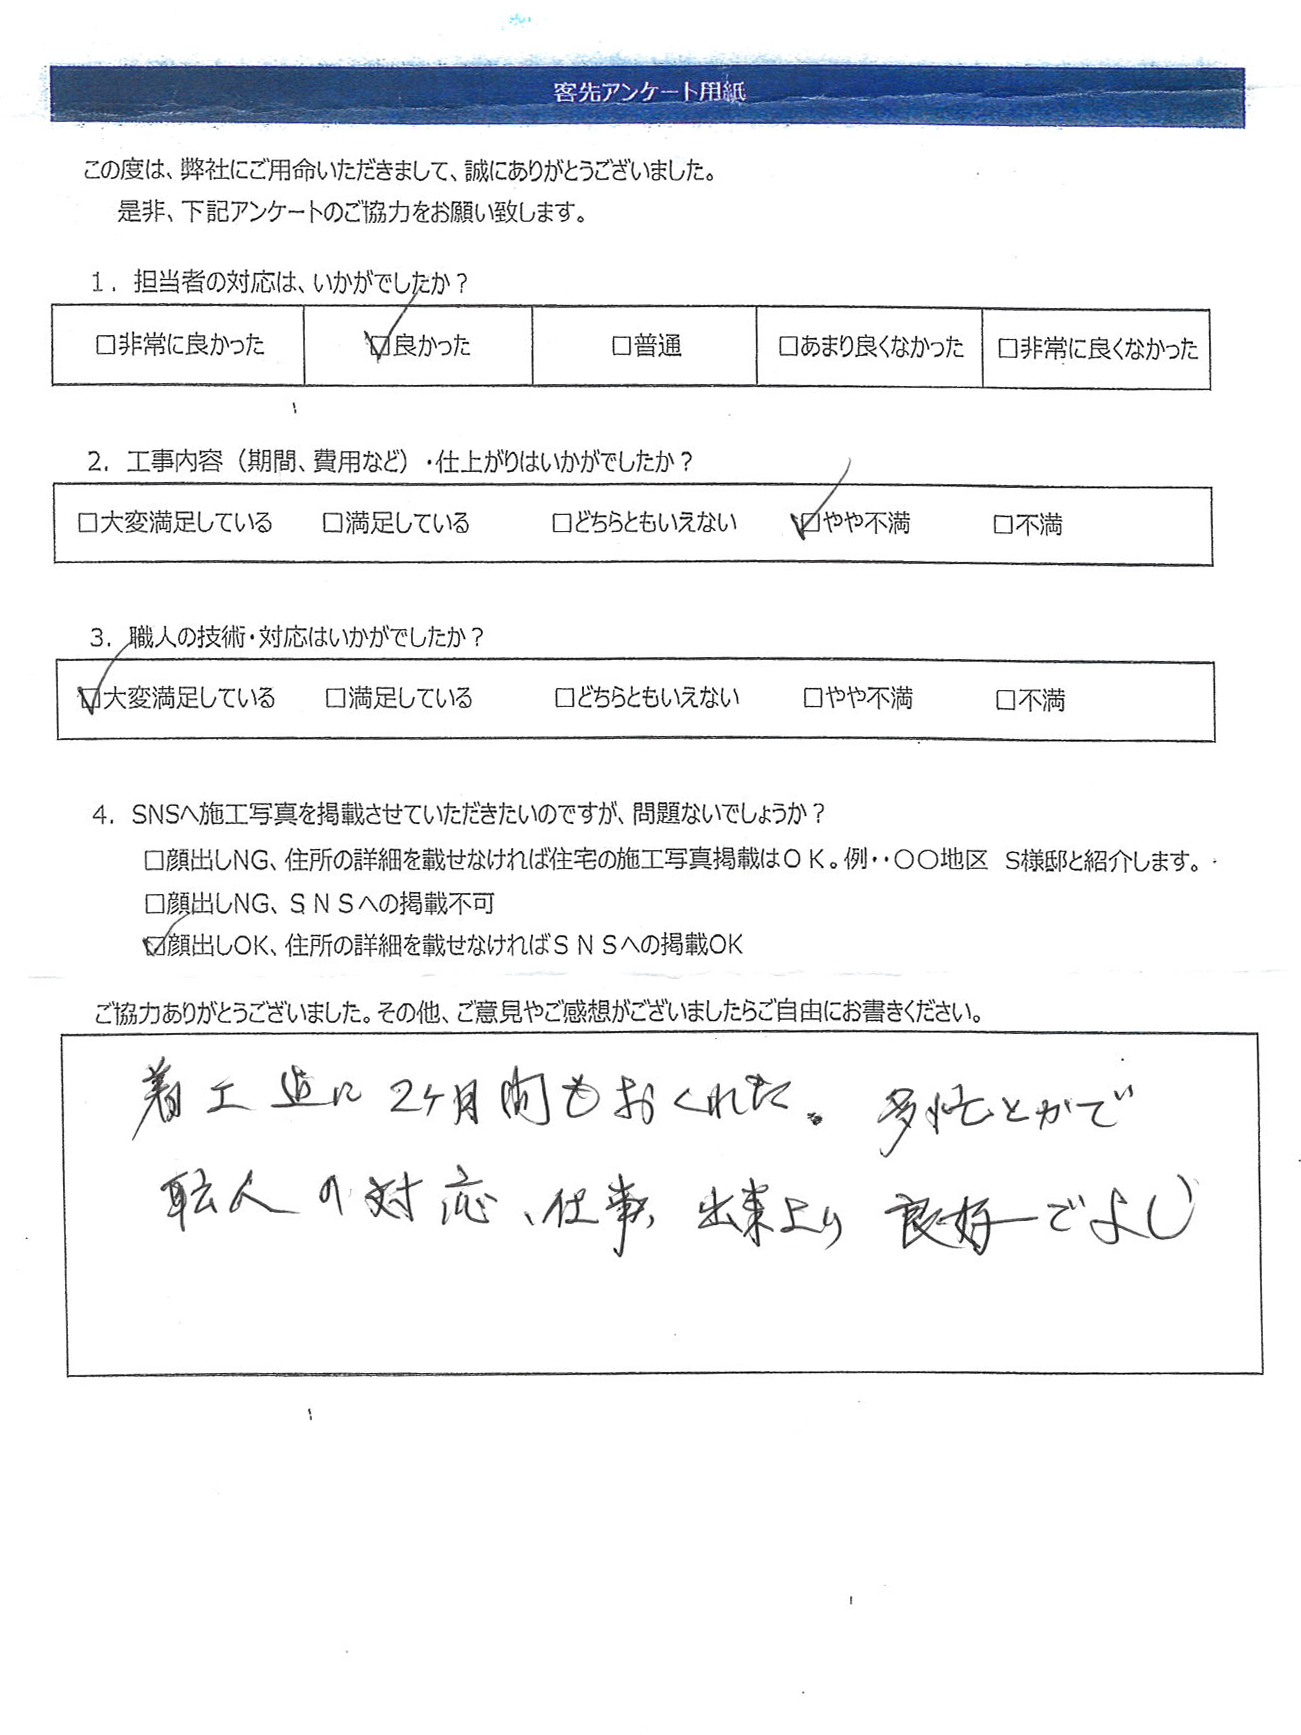 客先アンケート用紙
この度は、弊社にご用命いただきまして、誠にありがとうございました。
是非、下記アンケートのご協力をお願い致します。
1. 担当者の対応は、いかがでしたか？
☑非常に良かった ☑良かった □普通 □あまり良くなかった □非常に良くなかった
2. 工事内容（期間、費用など）・仕上がりはいかがでしたか？
□大変満足している □満足している □どちらともいえない ☑やや不満 □不満
3. 職人の技術・対応はいかがでしたか？
☑大変満足している □満足している □どちらともいえない □やや不満 □不満
4. SNSへ施工写真を掲載させていただきたいのですが、問題ないでしょうか？
□顔出しNG、住所の詳細を載せなければ住宅の施工写真掲載はＯＫ。例・・〇〇地区 S様邸と紹介します。
□顔出しNG、ＳＮＳへの掲載不可
☑顔出しOK、住所の詳細を載せなければＳＮＳへの掲載OK
ご協力ありがとうございました。その他、ご意見やご感想がございましたらご自由にお書きください。
着工迄に2ケ月間もおくれた。多忙とかで
職人の対応、仕事、出来上り良好でよし